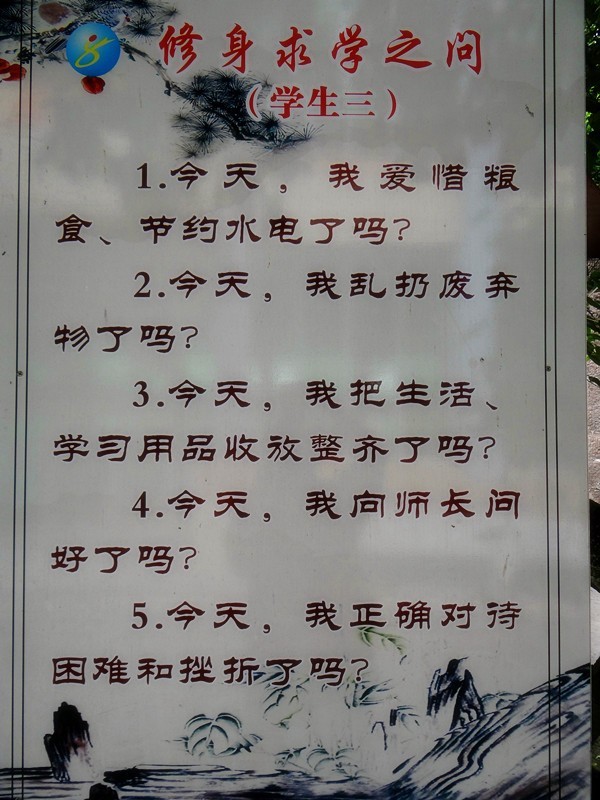 修身求学之问
（学生三）
1.今天，我爱惜粮
食、节约水电了吗?
2.今天，我乱扔废弃
物了吗?
3.今天，我把生活、
学习用品收放整齐了吗?
4.今天，我向师长问
好了吗?
5.今天，我正确对待
困难和挫折了吗?